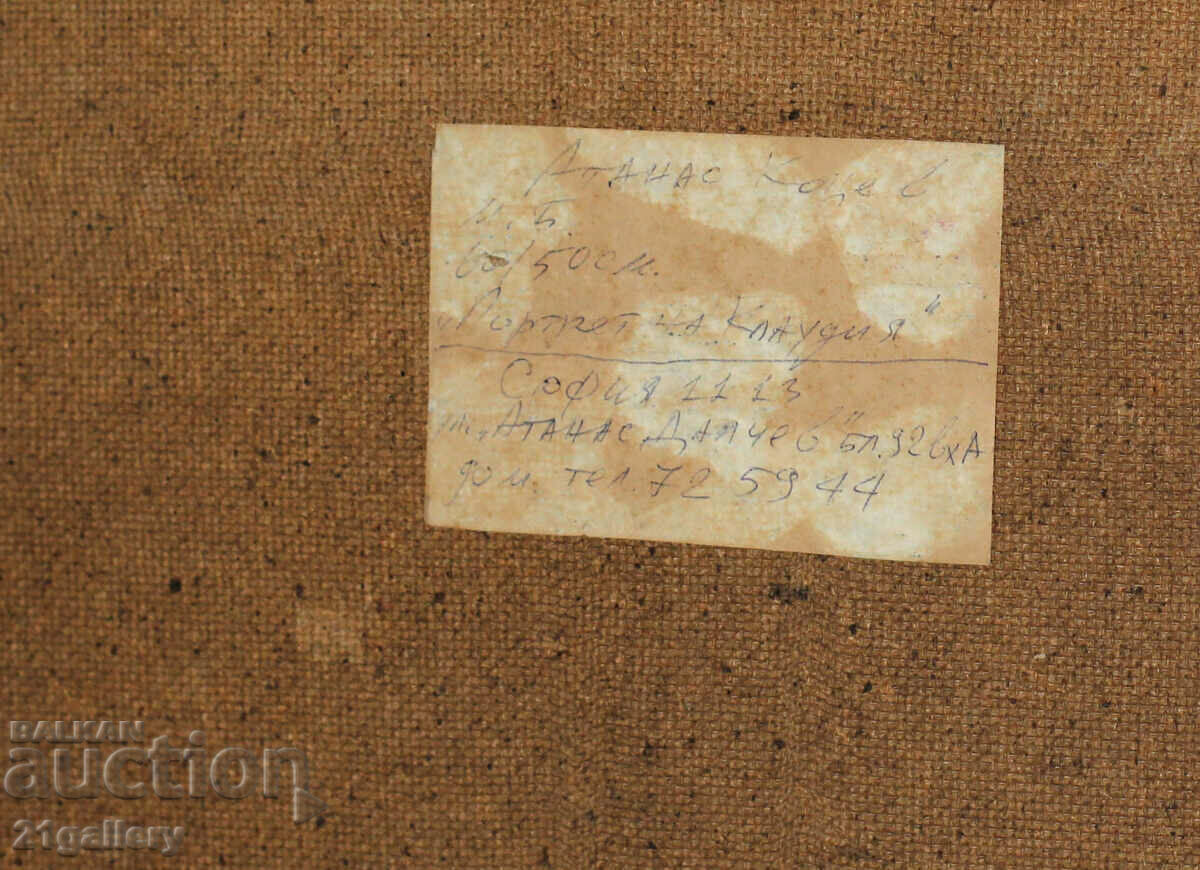 Атанас Коцев
м.б.
60/50 см.
„Портрет на Клаудия"
София 1113
ул. „Атанас Далчев" бл. 92 вх А
дом. тел. 72 59 44
BALKAN
auction
21gallery